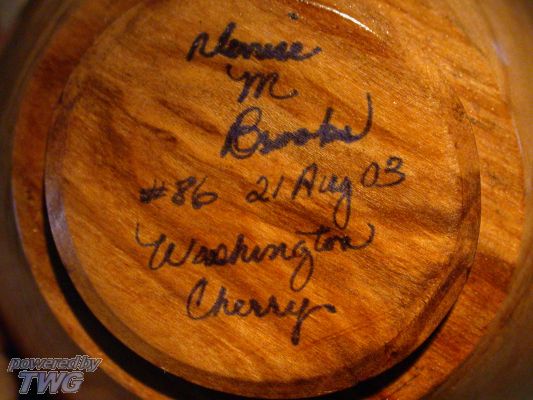 Denise
M
Brooks
#86 21 Aug 03
Washington
Cherry
powered by
TWG